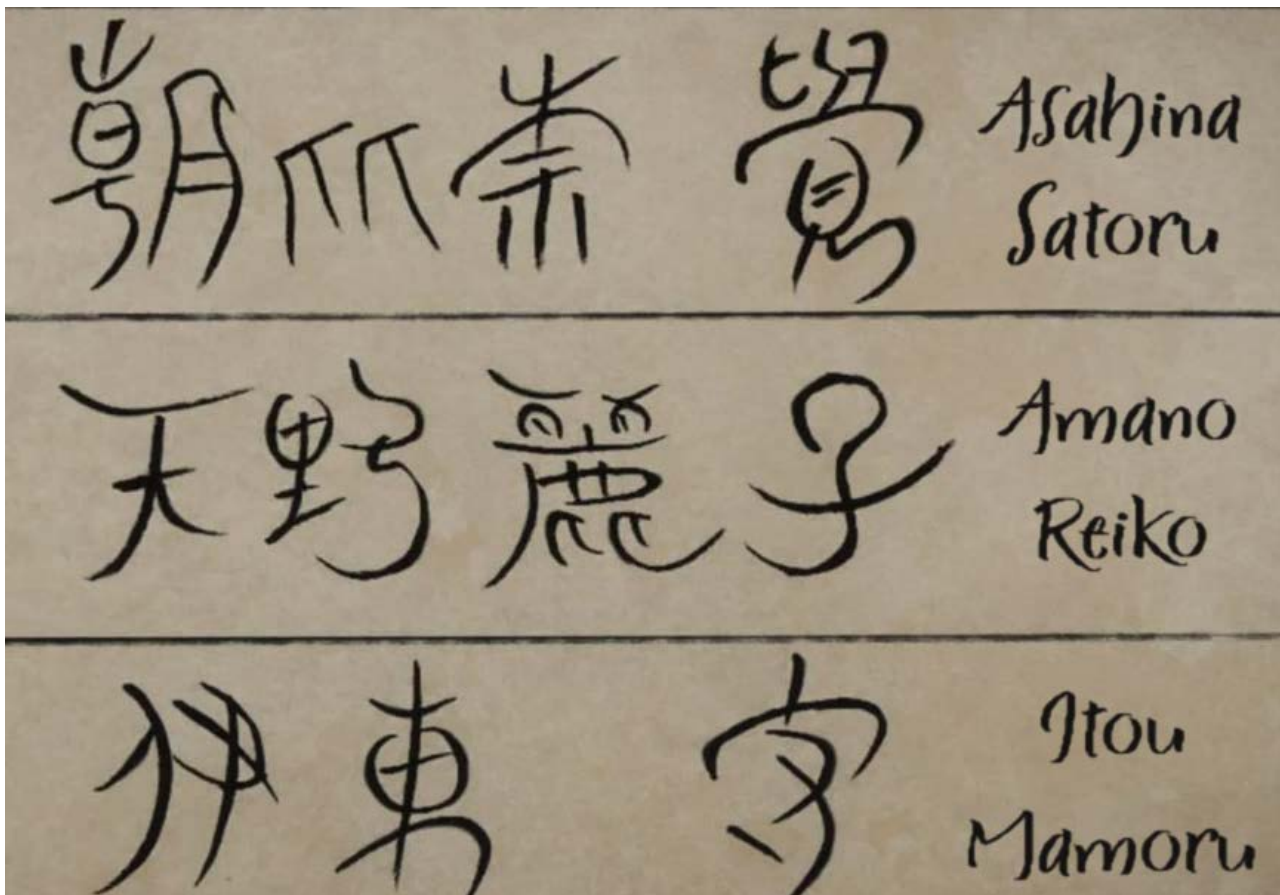 朝比奈 覺
Asahina
Satoru
天野麗子
Amano
Reiko
伊東 守
Itou
Mamoru